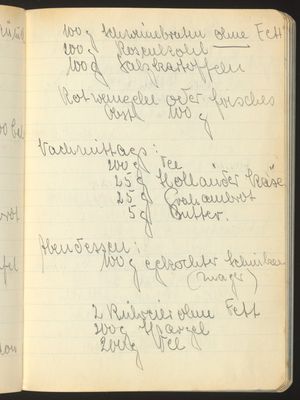 100 g Schweinebraten ohne Fett
200 g Rosenkohl
100 g Salzkartoffeln
Rotweingelee oder frisches
Obst 100 g
Nachmittags:
200 g Tee
25 g Holländer Käse
25 g Grahambrot
5 g Butter.
Abendessen:
100 g gekochter Schinken
(mager)
2 Rühreier ohne Fett
200 g Spargel
200 g Tee